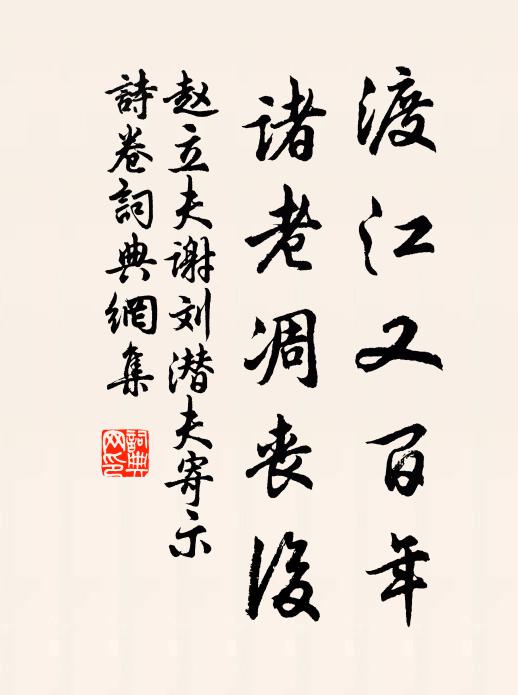 渡江又百年
诸老凋丧后
赵立夫谢刘潜夫寄示
詩卷詞典網集
詞典网印